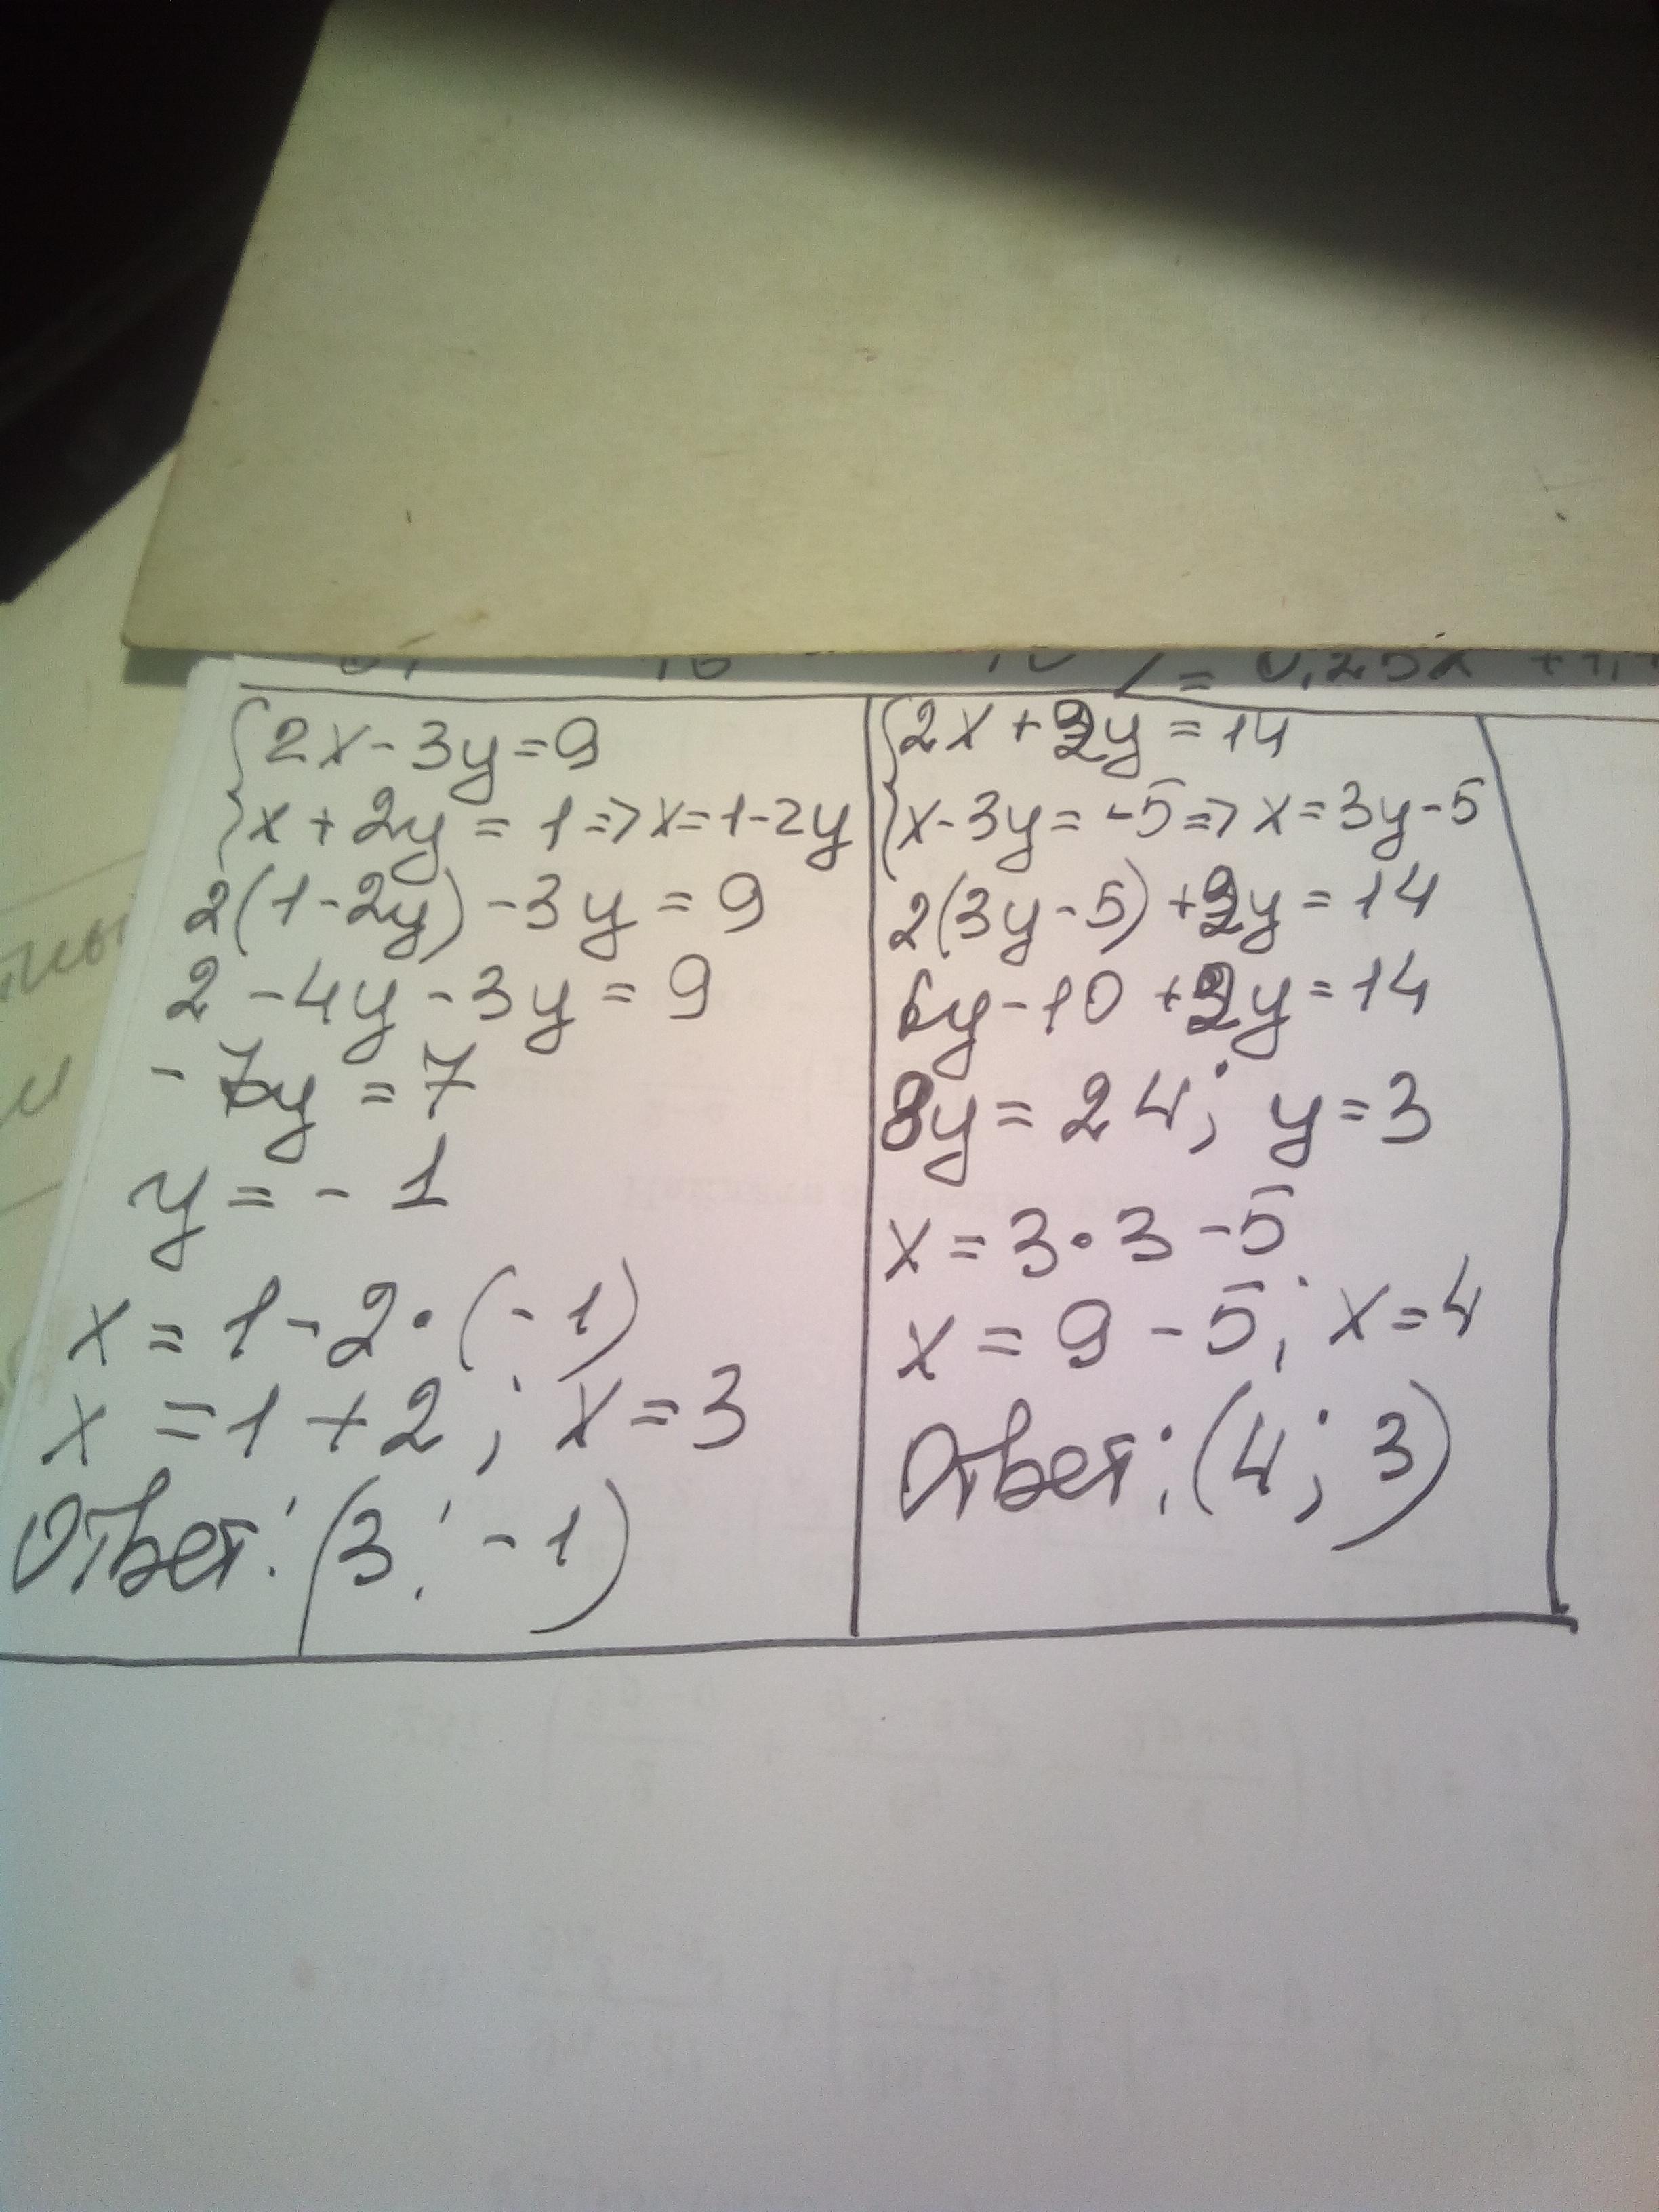 = 0,25x +1,
{2x-3y=9
x+2y=1=>x=1-2y
2(1-2y)-3y=9
2-4y-3y=9
-7y=7
y=-1
x=1-2·(-1)
x=1+2; x=3
Ответ: (3; -1)
{2x+2y=14
x-3y=-5=>x=3y-5
2(3y-5)+2y=14
6y-10+2y=14
8y=24; y=3
x=3·3-5
x=9-5; x=4
Ответ: (4; 3)